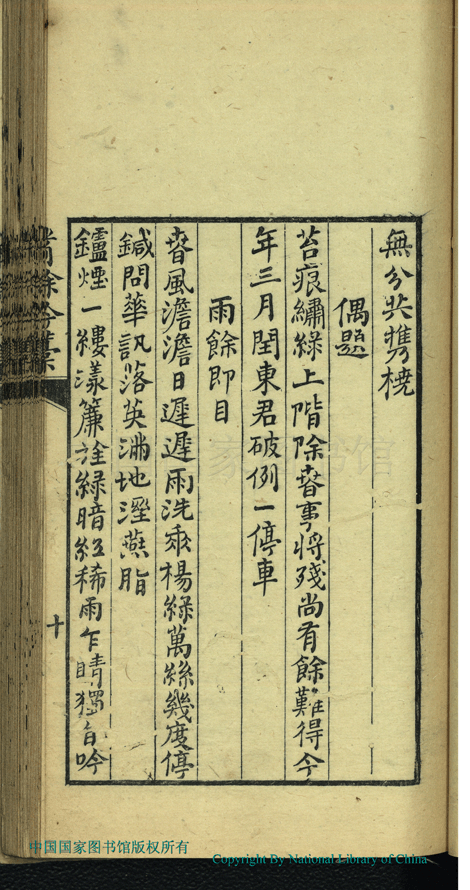 無分共携橈
偶題
苔痕繡綠上階除春事將殘尚有餘難得今
年三月閏東君破例一停車
雨餘即目
春風澹澹日遲遲雨洗垂楊綠萬絲幾度停
鍼問華訊落英滿地溼燕脂
鑪煙一縷漾簾旌綠暗紅稀雨乍晴獨自吟
十
中国国家图书馆版权所有
Copyright By National Library of China